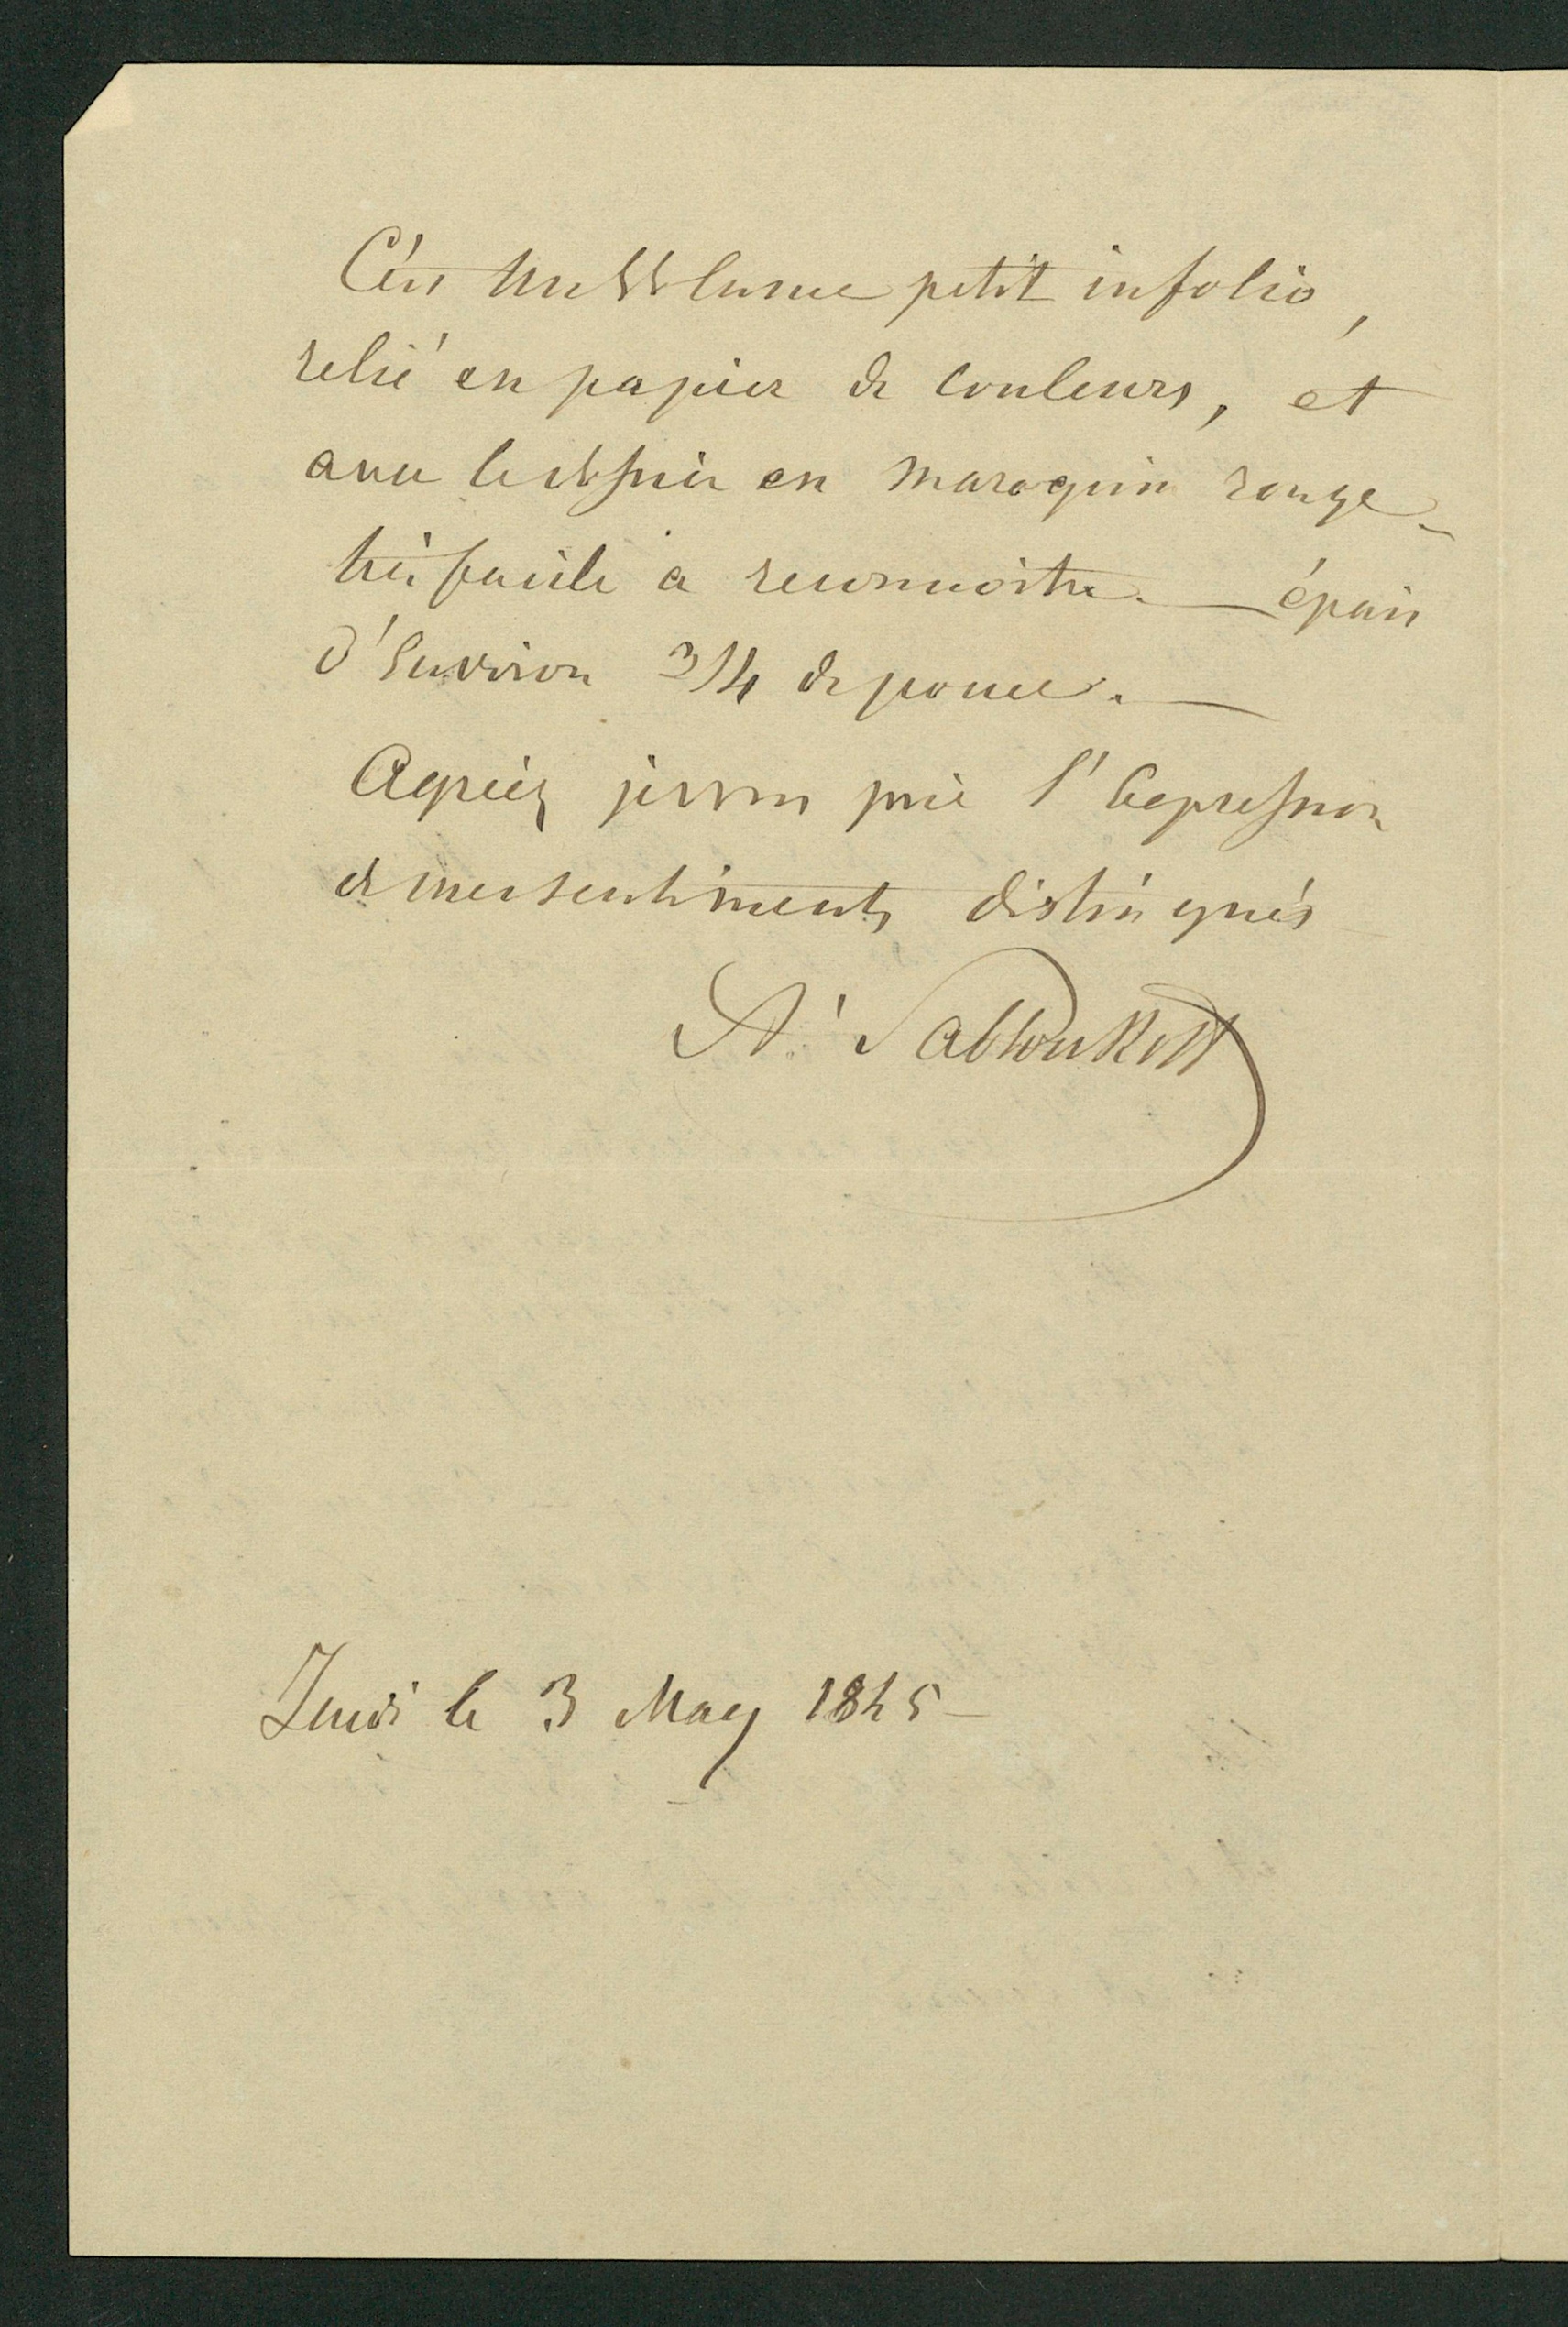 C'est un Volume petit infolio,
relié en papier de couleurs, et
avec le dossier en maroquin rouge
très facile a reconnoitre. — épais
d'Environ 3/4 de pouce. —
Agréez je vous prie l'Expression
de mes sentiments distingués
A. Sabloukoff
Jeudi le 3 May 1845